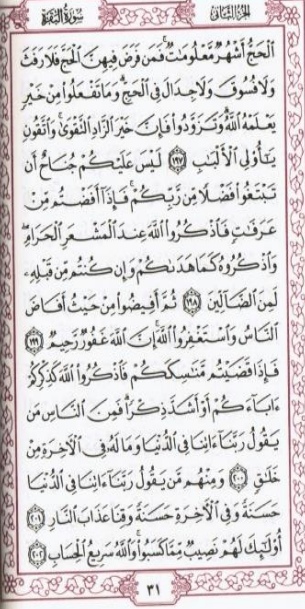 الجزء الثاني سورة البقرة
ٱلۡحَجُّ أَشۡهُرٞ مَّعۡلُومَٰتٞۚ فَمَن فَرَضَ فِيهِنَّ ٱلۡحَجَّ فَلَا رَفَثَ
وَلَا فُسُوقَ وَلَا جِدَالَ فِي ٱلۡحَجِّۗ وَمَا تَفۡعَلُواْ مِنۡ خَيۡرٖ
يَعۡلَمۡهُ ٱللَّهُۗ وَتَزَوَّدُواْ فَإِنَّ خَيۡرَ ٱلزَّادِ ٱلتَّقۡوَىٰۖ وَٱتَّقُونِ
يَٰٓأُوْلِي ٱلۡأَلۡبَٰبِ ١٩٧ لَيۡسَ عَلَيۡكُمۡ جُنَاحٌ أَن
تَبۡتَغُواْ فَضۡلٗا مِّن رَّبِّكُمۡۚ فَإِذَآ أَفَضۡتُم مِّنۡ
عَرَفَٰتٖ فَٱذۡكُرُواْ ٱللَّهَ عِندَ ٱلۡمَشۡعَرِ ٱلۡحَرَامِۖ
وَٱذۡكُرُوهُ كَمَا هَدَىٰكُمۡ وَإِن كُنتُم مِّن قَبۡلِهِۦ
لَمِنَ ٱلضَّآلِّينَ ١٩٨ ثُمَّ أَفِيضُواْ مِنۡ حَيۡثُ أَفَاضَ
ٱلنَّاسُ وَٱسۡتَغۡفِرُواْ ٱللَّهَۚ إِنَّ ٱللَّهَ غَفُورٞ رَّحِيمٞ ١٩٩
فَإِذَا قَضَيۡتُم مَّنَٰسِكَكُمۡ فَٱذۡكُرُواْ ٱللَّهَ كَذِكۡرِكُمۡ
ءَابَآءَكُمۡ أَوۡ أَشَدَّ ذِكۡرٗاۗ فَمِنَ ٱلنَّاسِ مَن
يَقُولُ رَبَّنَآ ءَاتِنَا فِي ٱلدُّنۡيَا وَمَا لَهُۥ فِي ٱلۡأٓخِرَةِ مِنۡ
خَلَٰقٖ ٢٠٠ وَمِنۡهُم مَّن يَقُولُ رَبَّنَآ ءَاتِنَا فِي ٱلدُّنۡيَا
حَسَنَةٗ وَفِي ٱلۡأٓخِرَةِ حَسَنَةٗ وَقِنَا عَذَابَ ٱلنَّارِ ٢٠١
أُوْلَٰٓئِكَ لَهُمۡ نَصِيبٞ مِّمَّا كَسَبُواْۚ وَٱللَّهُ سَرِيعُ ٱلۡحِسَابِ ٢٠٢
٣١